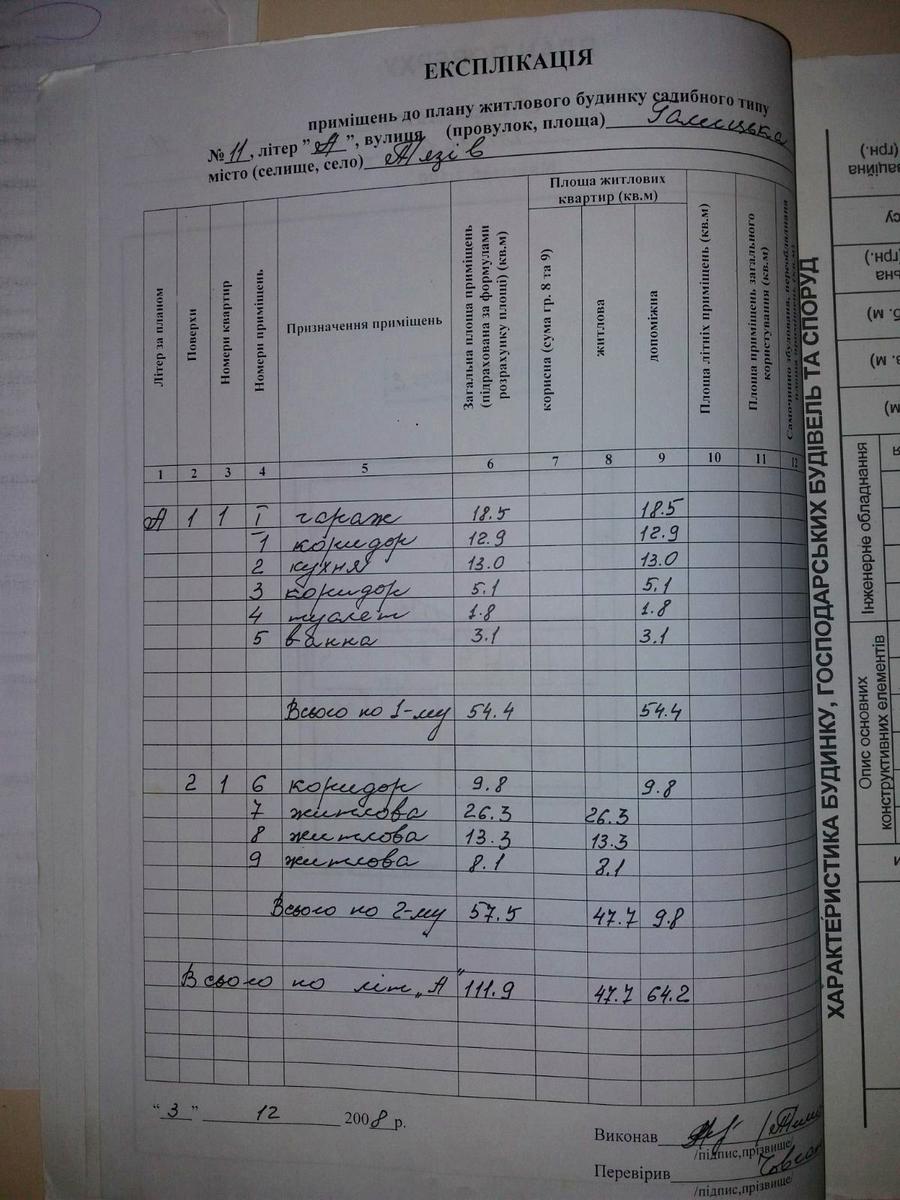 ЕКСПЛІКАЦІЯ
приміщень до плану житлового будинку садибного типу
№ 11, літер "А", вулиця (провулок, площа) Галицька
місто (селище, село) Тязів
Літер за планом
Поверхи
Номери квартир
Номери приміщень
Призначення приміщень
Загальна площа приміщень (підрахована за формулами розрахунку площі) (кв.м)
Площа житлових квартир (кв.м)
корисна (сума гр. 8 та 9)
житлова
допоміжна
Площа літніх приміщень (кв.м)
Площа приміщень загального користування (кв.м)
1 2 3 4 5 6 7 8 9 10 11 12
А 1 1 I гараж 18.5 18.5
1 коридор 12.9 12.9
2 кухня 13.0 13.0
3 коридор 5.1 5.1
4 туалет 1.8 1.8
5 ванна 3.1 3.1
Всього по 1-му 54.4 54.4
2 1 6 коридор 9.8 9.8
7 житлова 26.3 26.3
8 житлова 13.3 13.3
9 житлова 8.1 8.1
Всього по 2-му 57.5 47.7 9.8
Всього по літ „А" 111.9 47.7 64.2
"3" 12 2008 р.
Виконав
/підпис,прізвище/
Перевірив
/підпис,прізвище/
ХАРАКТЕРИСТИКА БУДИНКУ, ГОСПОДАРСЬКИХ БУДІВЕЛЬ ТА СПОРУД
Опис основних конструктивних елементів
Інженерне обладнання
(грн.)